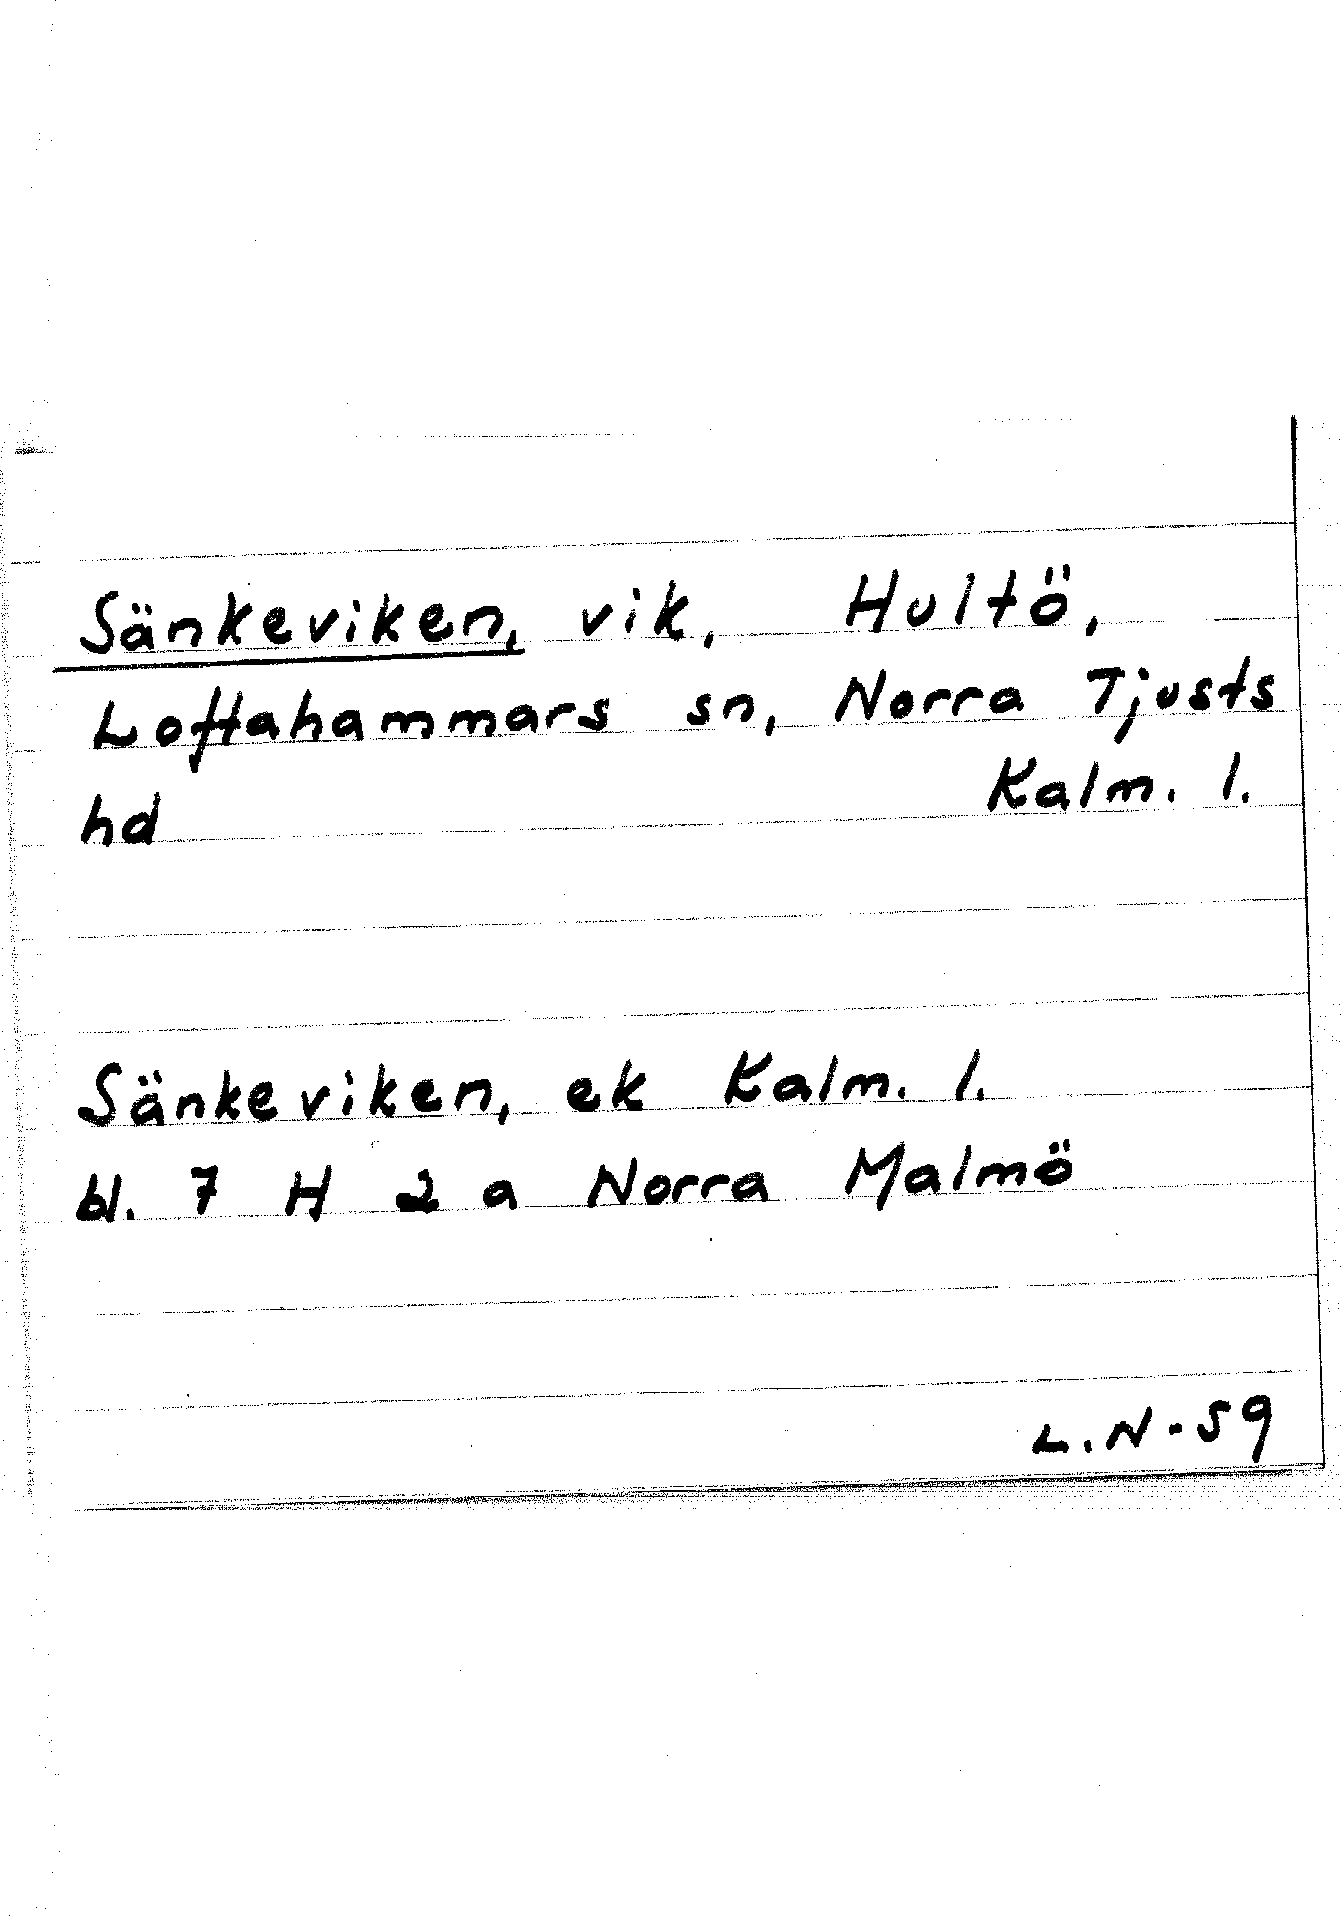 Sänkeviken, vik, Hultö,
Loftahammars sn, Norra Tjusts
hd Kalm. l.
Sänkeviken, ek Kalm. l.
bl. 7 H 2 a Norra Malmö
L.N-59